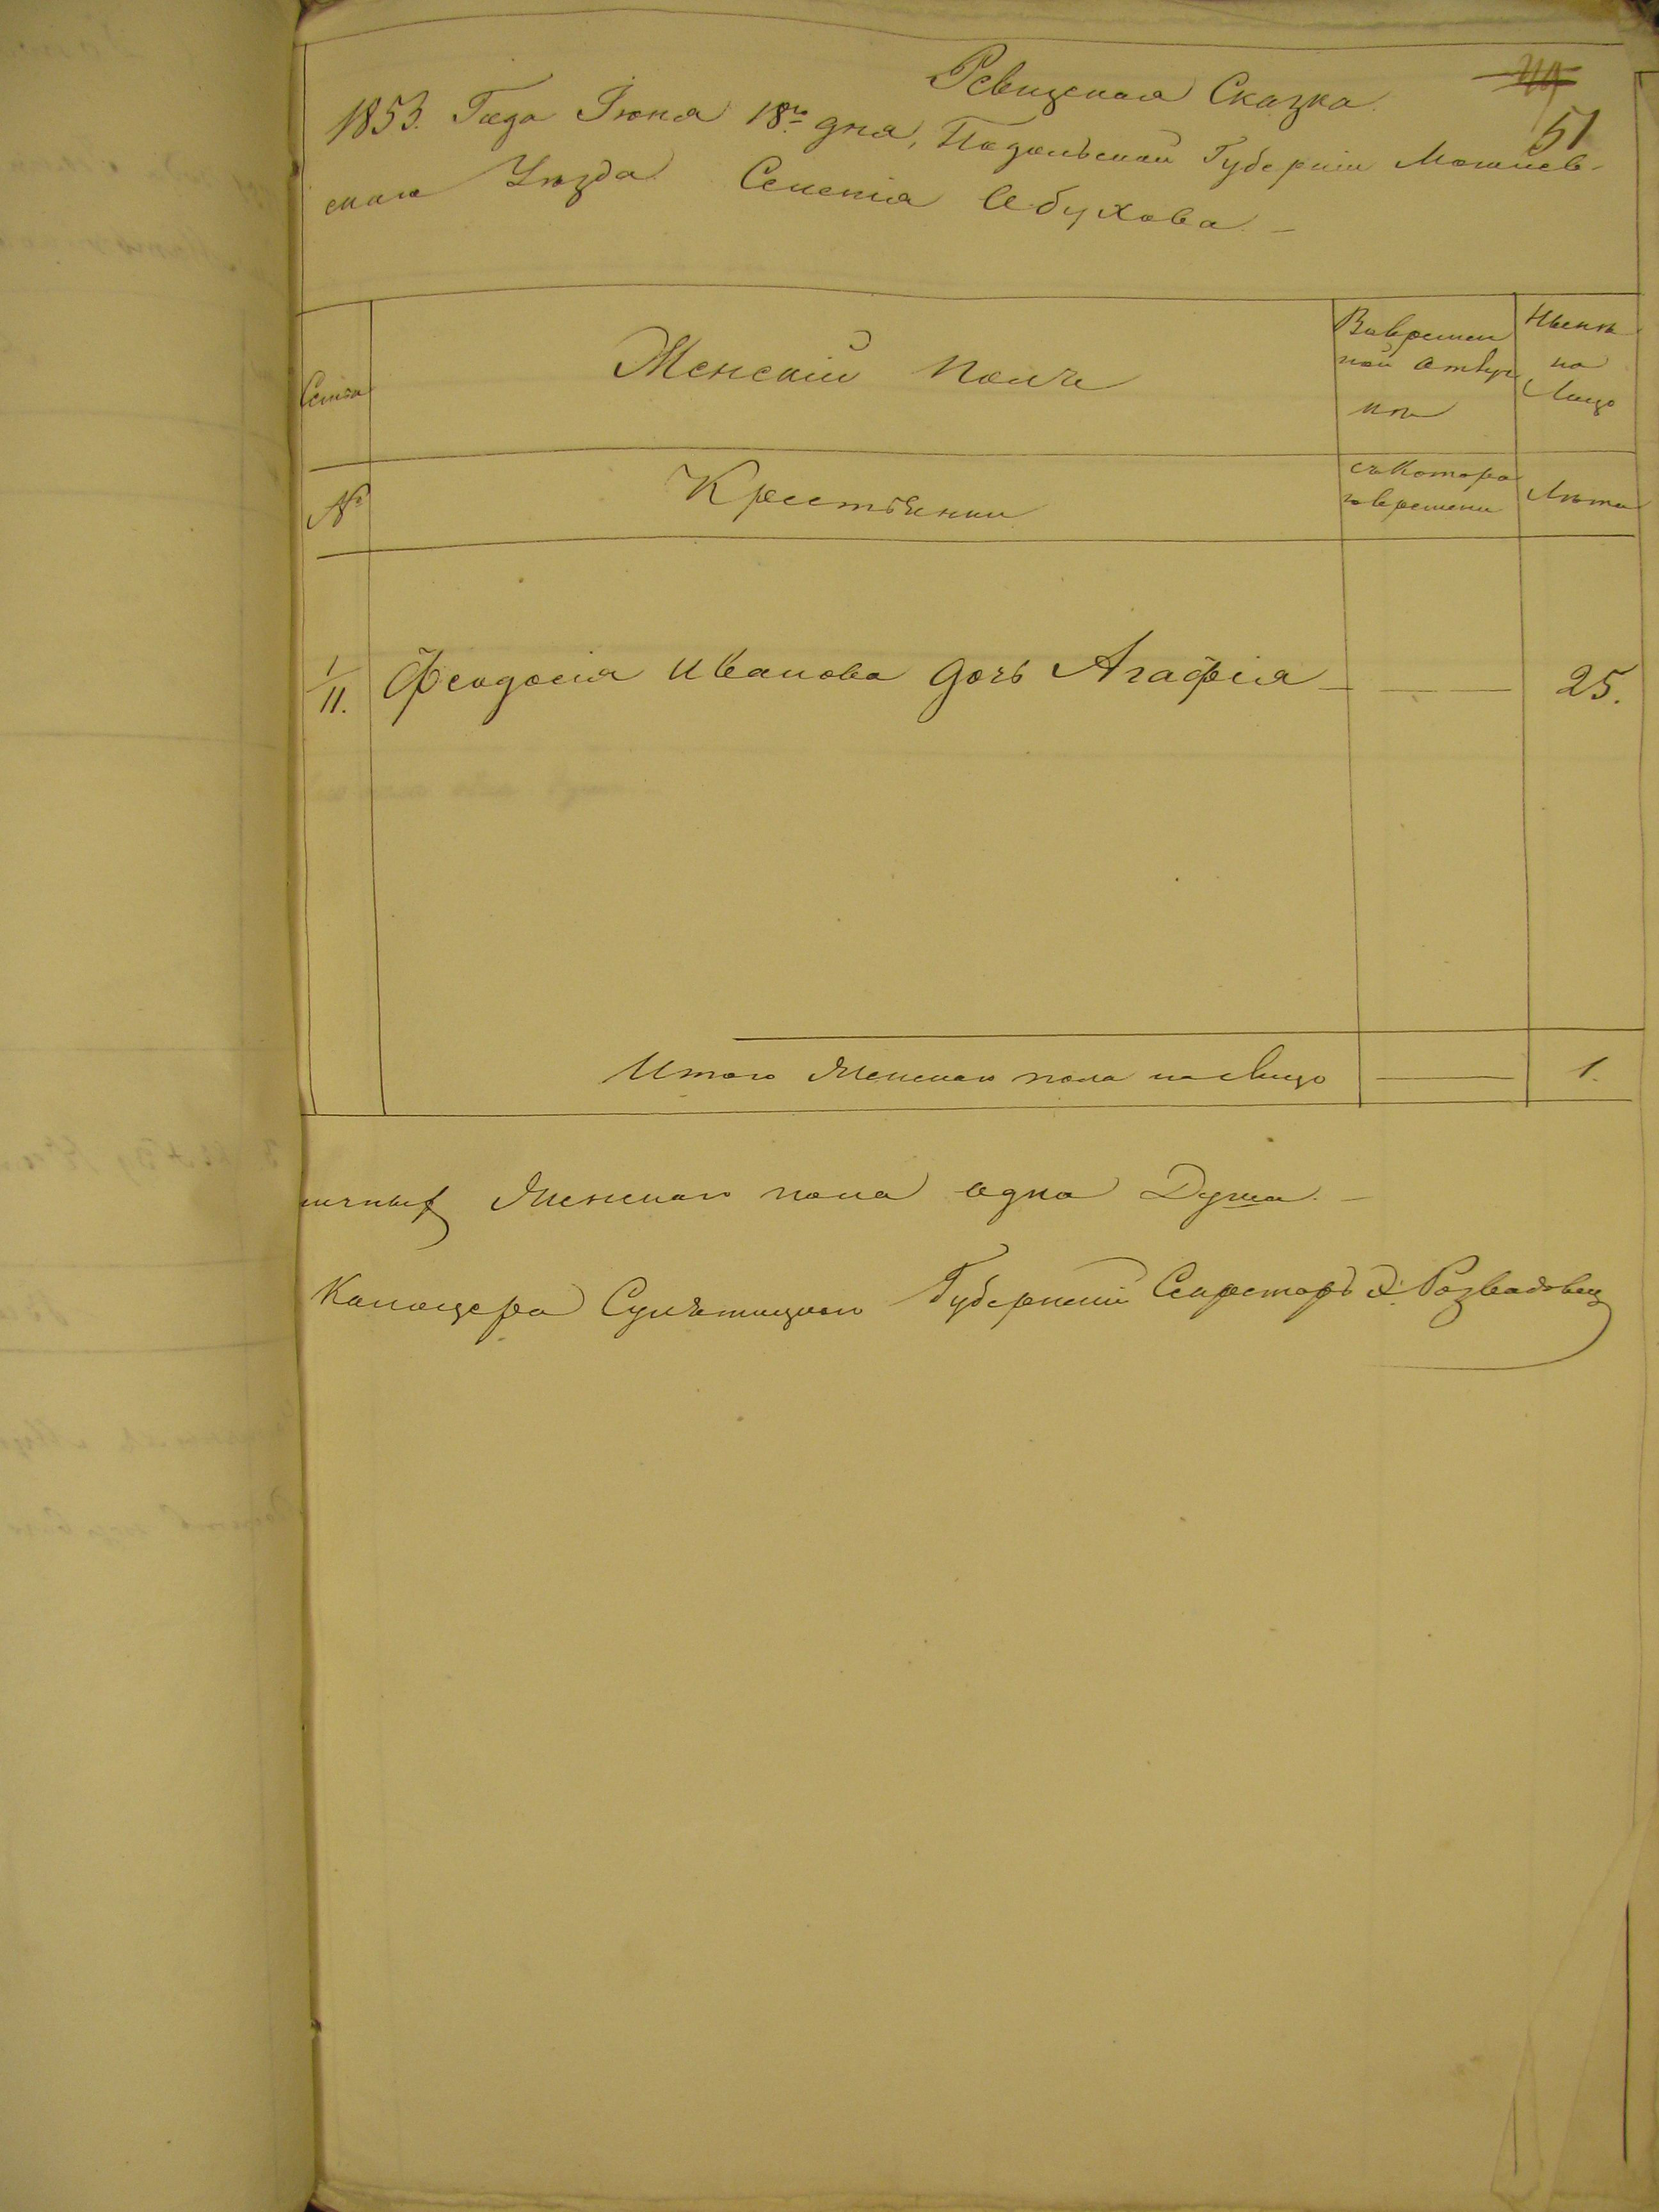 Ревизская Сказка.
51
1853. Года Іюня 18го дня, Подольской Губерніи Могилев-
скаго Уѣзда Селенія Обухова. —
Семьи
Женскій полъ
Вовремен
ной отлуч
кѣ
Нынѣ
на
Лицо
№
Крестьянки
съ Котора
го времени
Лѣта
1/11. Феодосія Иванова дочь Агафія — — 25.
Итого Женскаго пола на Лицо — 1.
личныхъ Женскаго пола одна Душа. —
Губернскій Секретарь